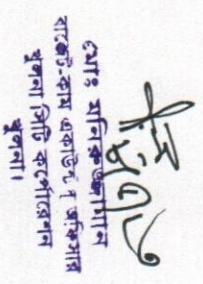 মোঃ মনিরুজ্জামান
বাজেট-কাম একাউন্টস অফিসার
খুলনা সিটি কর্পোরেশন
খুলনা।